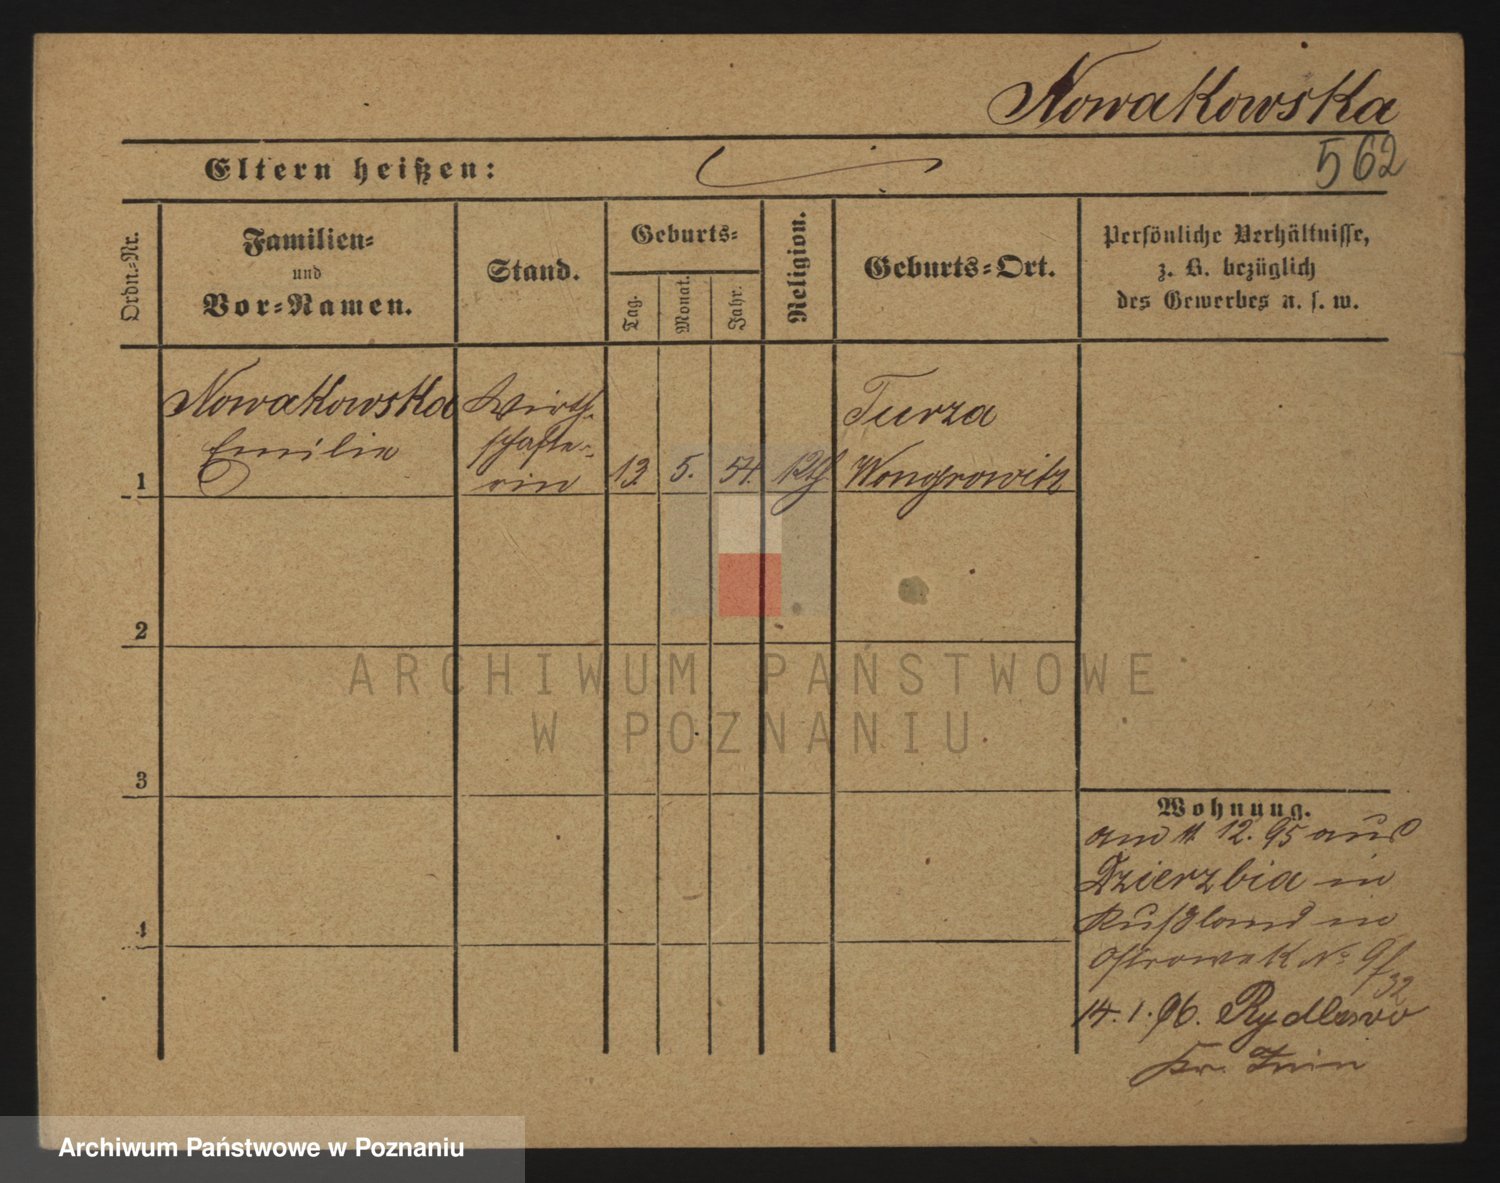 Nowakowska
562
Eltern heißen:
Ordn.-Nr.
Familien-
und
Vor-Namen.
Stand.
Geburts-
Tag.
Monat.
Jahr.
Religion.
Geburts-Ort.
Persönliche Verhältnisse,
z. B. bezüglich
des Gewerbes u. s. w.
1
Nowakowska
Emilie
Wirth-
schafte-
rin
13.
5.
54.
Turza
Wongrowitz
2
3
4
ARCHIWUM PAŃSTWOWE
W POZNANIU
Wohnung.
am 12. 95 aus
Dzierzbia in
Rußland in
Ostrowek No 9/32
14. 1. 96. Rydlewo
Kr. Znin
Archiwum Państwowe w Poznaniu